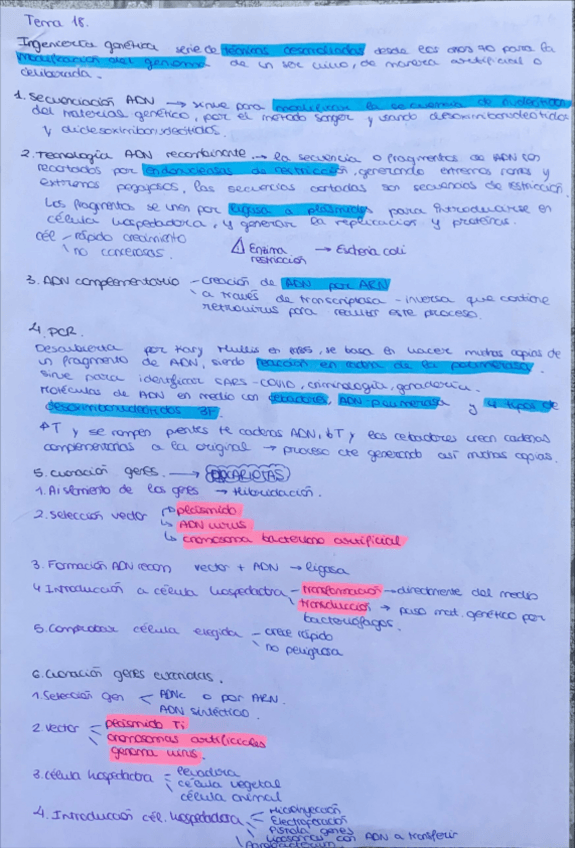 Tema 18.
Ingeniería genética serie de técnicas desarrolladas desde los años 70 para la
modificación del genoma de un ser vivo, de manera artificial o
deliberada.
1. Secuenciación ADN → sirve para modificar la secuencia de nucleótidos
del material genético, por el método Sanger y usando desoxirribonucleótidos
y didesoxirribonucleótidos.
2. Tecnología ADN recombinante → la secuencia o fragmentos de ADN son
recortados por endonucleasas de restricción, generando extremos romos y
extremos pegajosos, las secuencias cortadas son secuencias de restricción.
Los fragmentos se unen por ligasa a plásmidos para introducirse en
célula hospedadora, y generar la replicación y proteínas.
cél - rápido crecimiento
\ no cancerosas. ⚠ Enzima → Escheria coli
restricción
3. ADN complementario - creación de ADN por ARN
\ a través de transcriptasa - inversa que contiene
retrovirus para realizar este proceso.
4. PCR.
Descubierta por Kary Mullis en, se basa en hacer muchas copias de
un fragmento de ADN, siendo reacción en cadena de la polimerasa.
Sirve para identificar -COVID, criminología, ganadería.
Moléculas de ADN en medio con cebadores, ADN polimerasa y 4 tipos de
desoxirribonucleótidos 3F.
↑T y se rompen puentes de cadenas ADN, ↓T y los cebadores crean cadenas
complementarias a la original → proceso cte generando así muchas copias.
5. Clonación genes. → PROCARIOTAS
1. Aislamiento de los genes → Hibridación.
2. Selección vector → plásmido
↳ ADN virus
↳ cromosoma bacteriano artificial
3. Formación ADN recom vector + ADN → ligasa
4 Introducción a célula hospedadora - transformación → directamente del medio
\ transducción → paso mat. genético por
bacteriófagos.
5. Comprobar célula elegida - crece rápido
\ no peligrosa
6. Clonación genes eucariotas.
1. Selección gen < ADNc o por ARN.
ADN sintético.
2. vector - plásmido Ti
\ cromosomas artificiales
genoma virus.
3. célula hospedadora - levadura
\ célula vegetal
célula animal
4. Introducción cél. hospedadora - Microinyección
\ Electroporación
Pistola genes
liposomas con ADN a transferir
\ Agrobacterium